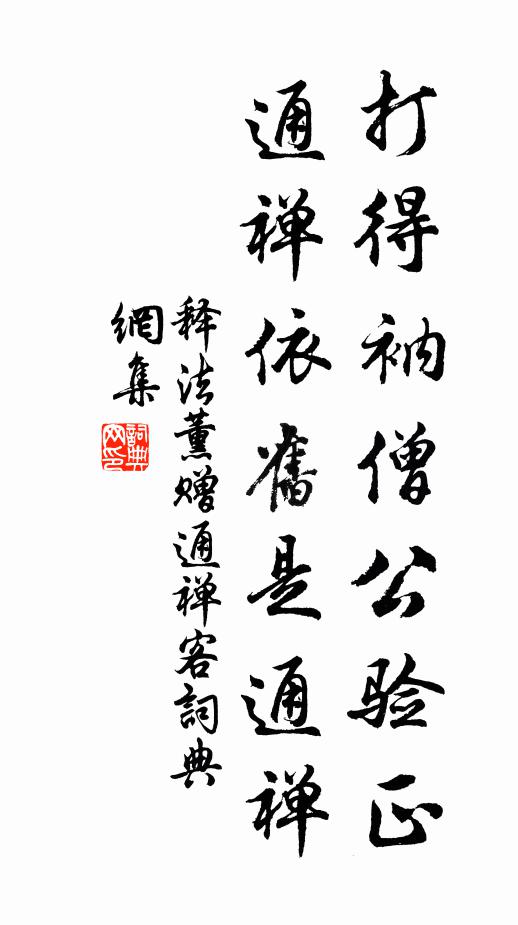 打得衲僧公验正
通禅依舊是通禅
释法薰赠通禅客詞典
網集
詞典
网印